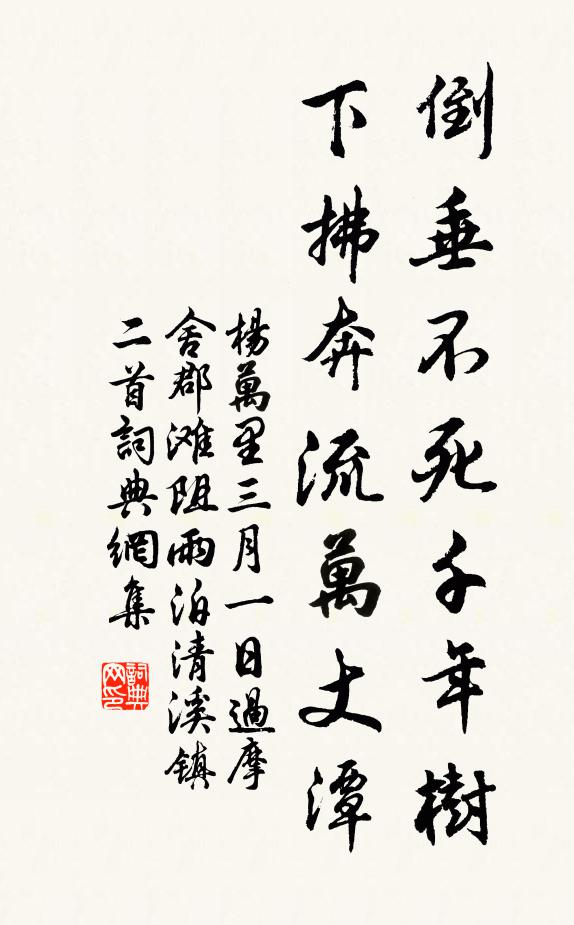 倒垂不死千年樹
下拂奔流萬丈潭
楊萬里三月一日過摩
舍郡滩阻雨泊清溪镇
二首詞典網集
詞典网印